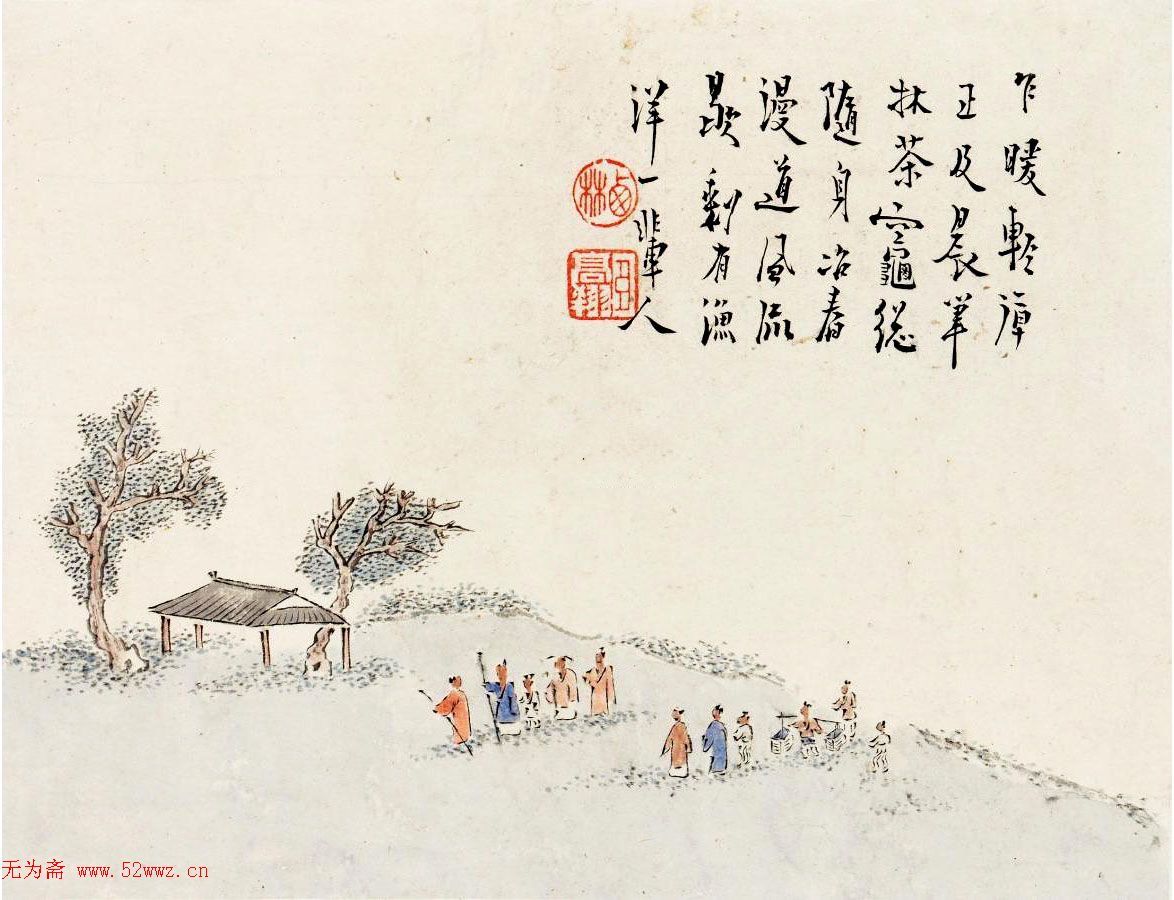 乍暖輕
正及晨筆
牀茶竈總
隨身冶春
漫道風流
歇剩有漁
洋一輩人
臣高翔
无为斋 www.52wwz.cn